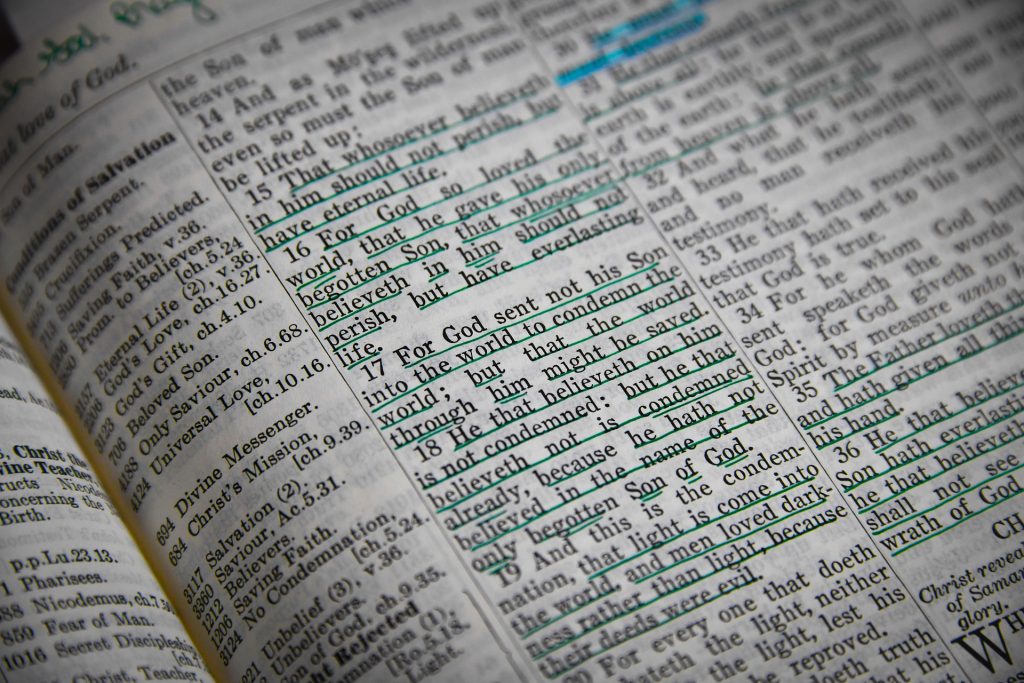 love of God.
Son of Man.
Conditions of Salvation
Brazen Serpent.
Crucifixion.
Sufferings Predicted.
Saving Faith, v.36.
Prom. to Believers,
[ch.5.24
Eternal Life (2), v.36
God's Love, ch.16.27.
God's Gift, ch.4.10.
706 Beloved Son.
Only Saviour, ch.6.68.
4124 Universal Love,
[ch.10.16.
694 Divine Messenger.
684 Christ's Mission,
[ch.9.39.
3117 Salvation (2).
Saviour, Ac.5.31.
1212 Believers.
1206 Saving Faith.
3124 No Condemnation,
[ch.5.24.
Unbelief (3), v.36.
Unbelievers.
of God, ch.9.35.
Rejected
(1),
[Ro.5.18.
Light.
Christ the
Teacher
Nicode
concerning the
Birth.
p.p.Lu.23.13.
1 Pharisees.
Nicodemus, ch.7.50
859 Fear of Man.
1016 Secret Discipleship
Christ, Teacher,
the Son of man
heaven.
14 And as Mō'ṣeṣ lifted up
the serpent in the wilderness,
even so must the Son of man
be lifted up:
15 That whosoever believeth
in him should not perish, but
have eternal life.
16 For God so loved the
world, that he gave his only
begotten Son, that whosoever
believeth in him should not
perish, but have everlasting
life.
17 For God sent not his Son
into the world to condemn the
world; but that the world
through him might be saved.
18 He that believeth on him
is not condemned: but he that
believeth not is condemned
already, because he hath not
believed in the name of the
only begotten Son of God.
19 And this is the condem-
nation, that light is come into
the world, and men loved dark-
ness rather than light, because
their deeds were evil.
20 For every one that doeth
hateth the light, neither
the light, lest his
be reproved.
doeth truth
that his
30
31 He that cometh
is above all: he that is of the
earth is earthly, and speaketh
of the earth: he that cometh
from heaven is above all.
32 And what he hath seen
and heard, that he testifieth;
and no man receiveth his
testimony.
33 He that hath received his
testimony hath set to his seal
that God is true.
34 For he whom God hath
sent speaketh the words
God: for God giveth not
Spirit by measure unto
35 The Father loveth the
and hath given all thin
his hand.
36 He that believe
Son hath everlastin
he that believeth
shall not see
wrath of God
CH
Christ revea
of Samar
glory.
WH